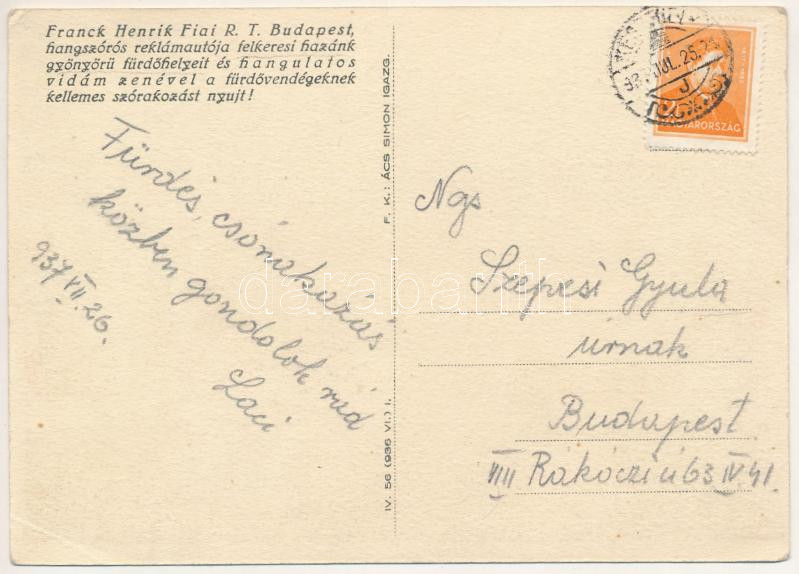 Franck Henrik Fiai R. T. Budapest,
hangszórós reklámautója felkeresi hazánk
gyönyörű fürdőhelyeit és hangulatos
vidám zenével a fürdővendégeknek
kellemes szórakozást nyujt!
Fürdés, csónakázás
közben gondolok rád
Laci
937 VII. 26.
IV. 56 (936 VI.) I.
F. K.: ÁCS SIMON IGAZG.
JUL. 25.
MAGYARORSZÁG
Ngs
Szepesi Gyula
úrnak
Budapest
VIII Rákóczi ú 63 IV 41.
darabanth